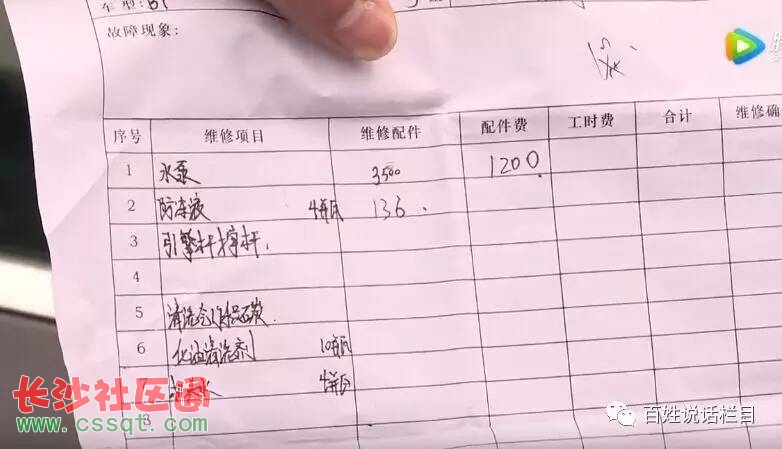 车型:
故障现象:
序号 维修项目 维修配件 配件费 工时费 合计 维修确
1 水泵 3500 1200
2 防冻液 4瓶 136
3 引擎杆撑杆
4
5 清洗
6 化油清洗剂 10瓶
4瓶
长沙社区通
www.cssqt.com
百姓说话栏目